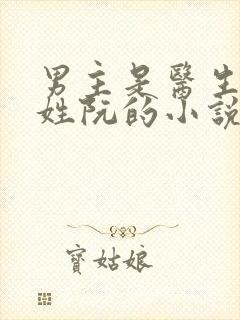 男主是醫生
姓阮的小說
寶姑娘